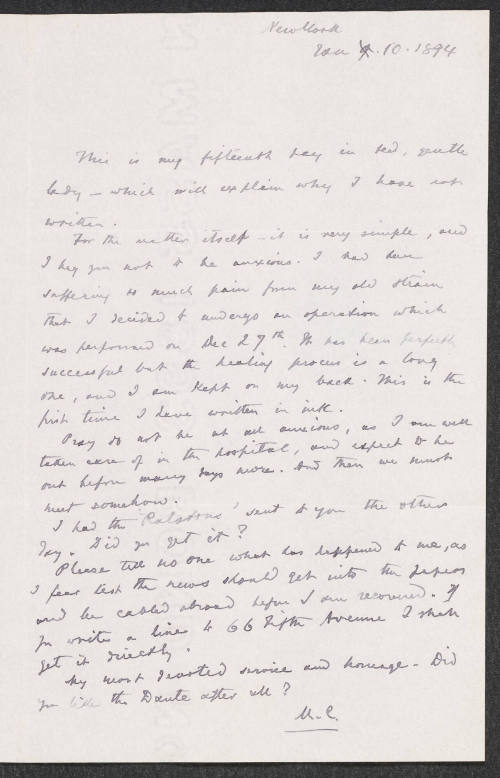 New York
Jan 10. 1894
This is my fifteenth day in bed, gentle
lady — which will explain why I have not
written.
For the matter itself — it is very simple, and
I beg you not to be anxious. I had been
suffering so much pain from my old strain
that I decided to undergo an operation which
was performed on Dec 27th. It has been perfectly
successful but the healing process is a long
one, and I am kept on my back. This is the
first time I have written in ink.
Pray do not be at all anxious, as I am well
taken care of in the hospital, and expect to be
out before many days more. And then we must
meet somehow.
I had the 'Ralstons' sent to you the other
day. Did you get it?
Please tell no one what has happened to me, as
I fear lest the news should get into the papers
and be cabled abroad before I am recovered. If
you write a line to 66 Fifth Avenue I shall
get it directly.
My most devoted service and homage. Did
you like the Dante after all?
M.C.